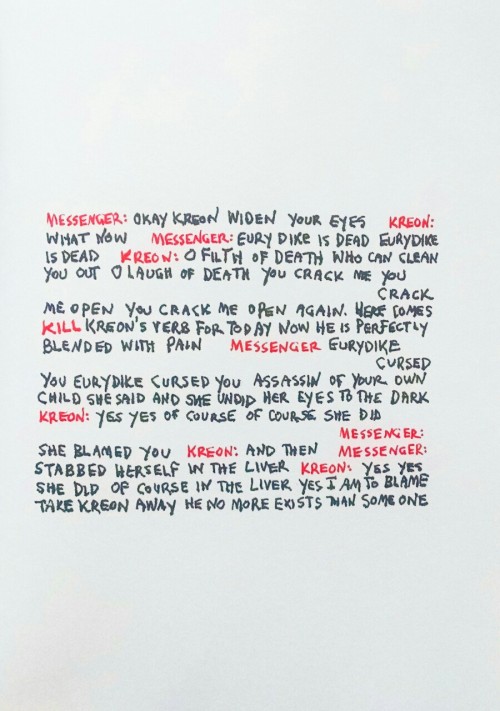 MESSENGER: OKAY KREON WIDEN YOUR EYES KREON:
WHAT NOW MESSENGER: EURYDIKE IS DEAD EURYDIKE
IS DEAD KREON: O FILTH OF DEATH WHO CAN CLEAN
YOU OUT O LAUGH OF DEATH YOU CRACK ME YOU
CRACK
ME OPEN YOU CRACK ME OPEN AGAIN. HERE COMES
KILL KREON'S VERB FOR TODAY NOW HE IS PERFECTLY
BLENDED WITH PAIN MESSENGER EURYDIKE
CURSED
YOU EURYDIKE CURSED YOU ASSASSIN OF YOUR OWN
CHILD SHE SAID AND SHE UNDID HER EYES TO THE DARK
KREON: YES YES OF COURSE OF COURSE SHE DID
MESSENGER:
SHE BLAMED YOU KREON: AND THEN MESSENGER:
STABBED HERSELF IN THE LIVER KREON: YES YES
SHE DID OF COURSE IN THE LIVER YES I AM TO BLAME
TAKE KREON AWAY HE NO MORE EXISTS THAN SOMEONE